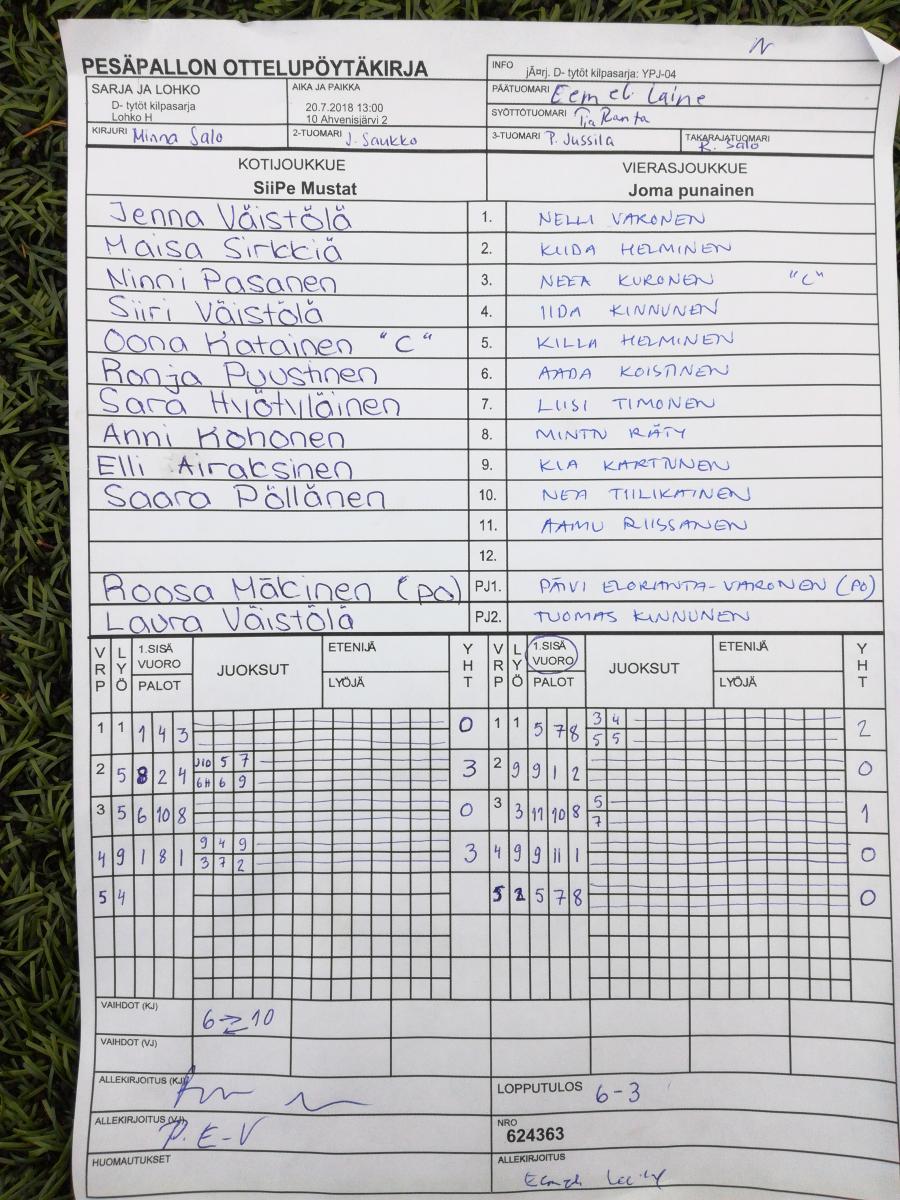 N
PESÄPALLON OTTELUPÖYTÄKIRJA
INFO jÃ¤rj. D- tytöt kilpasarja: YPJ-04
SARJA JA LOHKO
D- tytöt kilpasarja
Lohko H
AIKA JA PAIKKA
20.7.2018 13:00
10 Ahvenisjärvi 2
PÄÄTUOMARI Eemeli Laine
SYÖTTÖTUOMARI Tia Ranta
KIRJURI Minna Salo
2-TUOMARI J. Saukko
3-TUOMARI P. Jussila
TAKARAJATUOMARI R. Salo
KOTIJOUKKUE
SiiPe Mustat
VIERASJOUKKUE
Joma punainen
Jenna Väistölä 1. NELLI VARONEN
Maisa Sirkkiä 2. KIIDA HELMINEN
Ninni Pasanen 3. NEEA KURONEN "C"
Siiri Väistölä 4. IIDA KINNUNEN
Oona Katainen "C" 5. KILLA HELMINEN
Ronja Puustinen 6. AADA KOISTINEN
Sara Hyötyläinen 7. LIISI TIMONEN
Anni Kohonen 8. MINTN RÄTY
Elli Airaksinen 9. KIA KARTTUNEN
Saara Pöllänen 10. NEA TIILIKAINEN
11. AAMU RIISSANEN
12.
Roosa Mäkinen (PO) PJ1. PÄIVI ELORANTA-VARONEN (PO)
Laura Väistölä PJ2. TUOMAS KINNUNEN
VRP LYÖ 1.SISÄ VUORO PALOT JUOKSUT ETENIJÄ LYÖJÄ YHT VRP LYÖ 1.SISÄ VUORO PALOT JUOKSUT ETENIJÄ LYÖJÄ YHT
1 1 1 4 3 0 1 1 5 7 8 3 4 2
5 5
2 5 8 2 4 J10 5 7 3 2 9 9 1 2 0
6H 6 9
3 5 6 10 8 0 3 3 11 10 8 5 1
7
4 9 1 8 1 9 4 9 3 4 9 9 11 1 0
3 7 2
5 4 5 2 5 7 8 0
VAIHDOT (KJ) 6 10
VAIHDOT (VJ)
ALLEKIRJOITUS (KJ)
LOPPUTULOS 6-3
ALLEKIRJOITUS (VJ) P. E-V
NRO
624363
HUOMAUTUKSET
ALLEKIRJOITUS